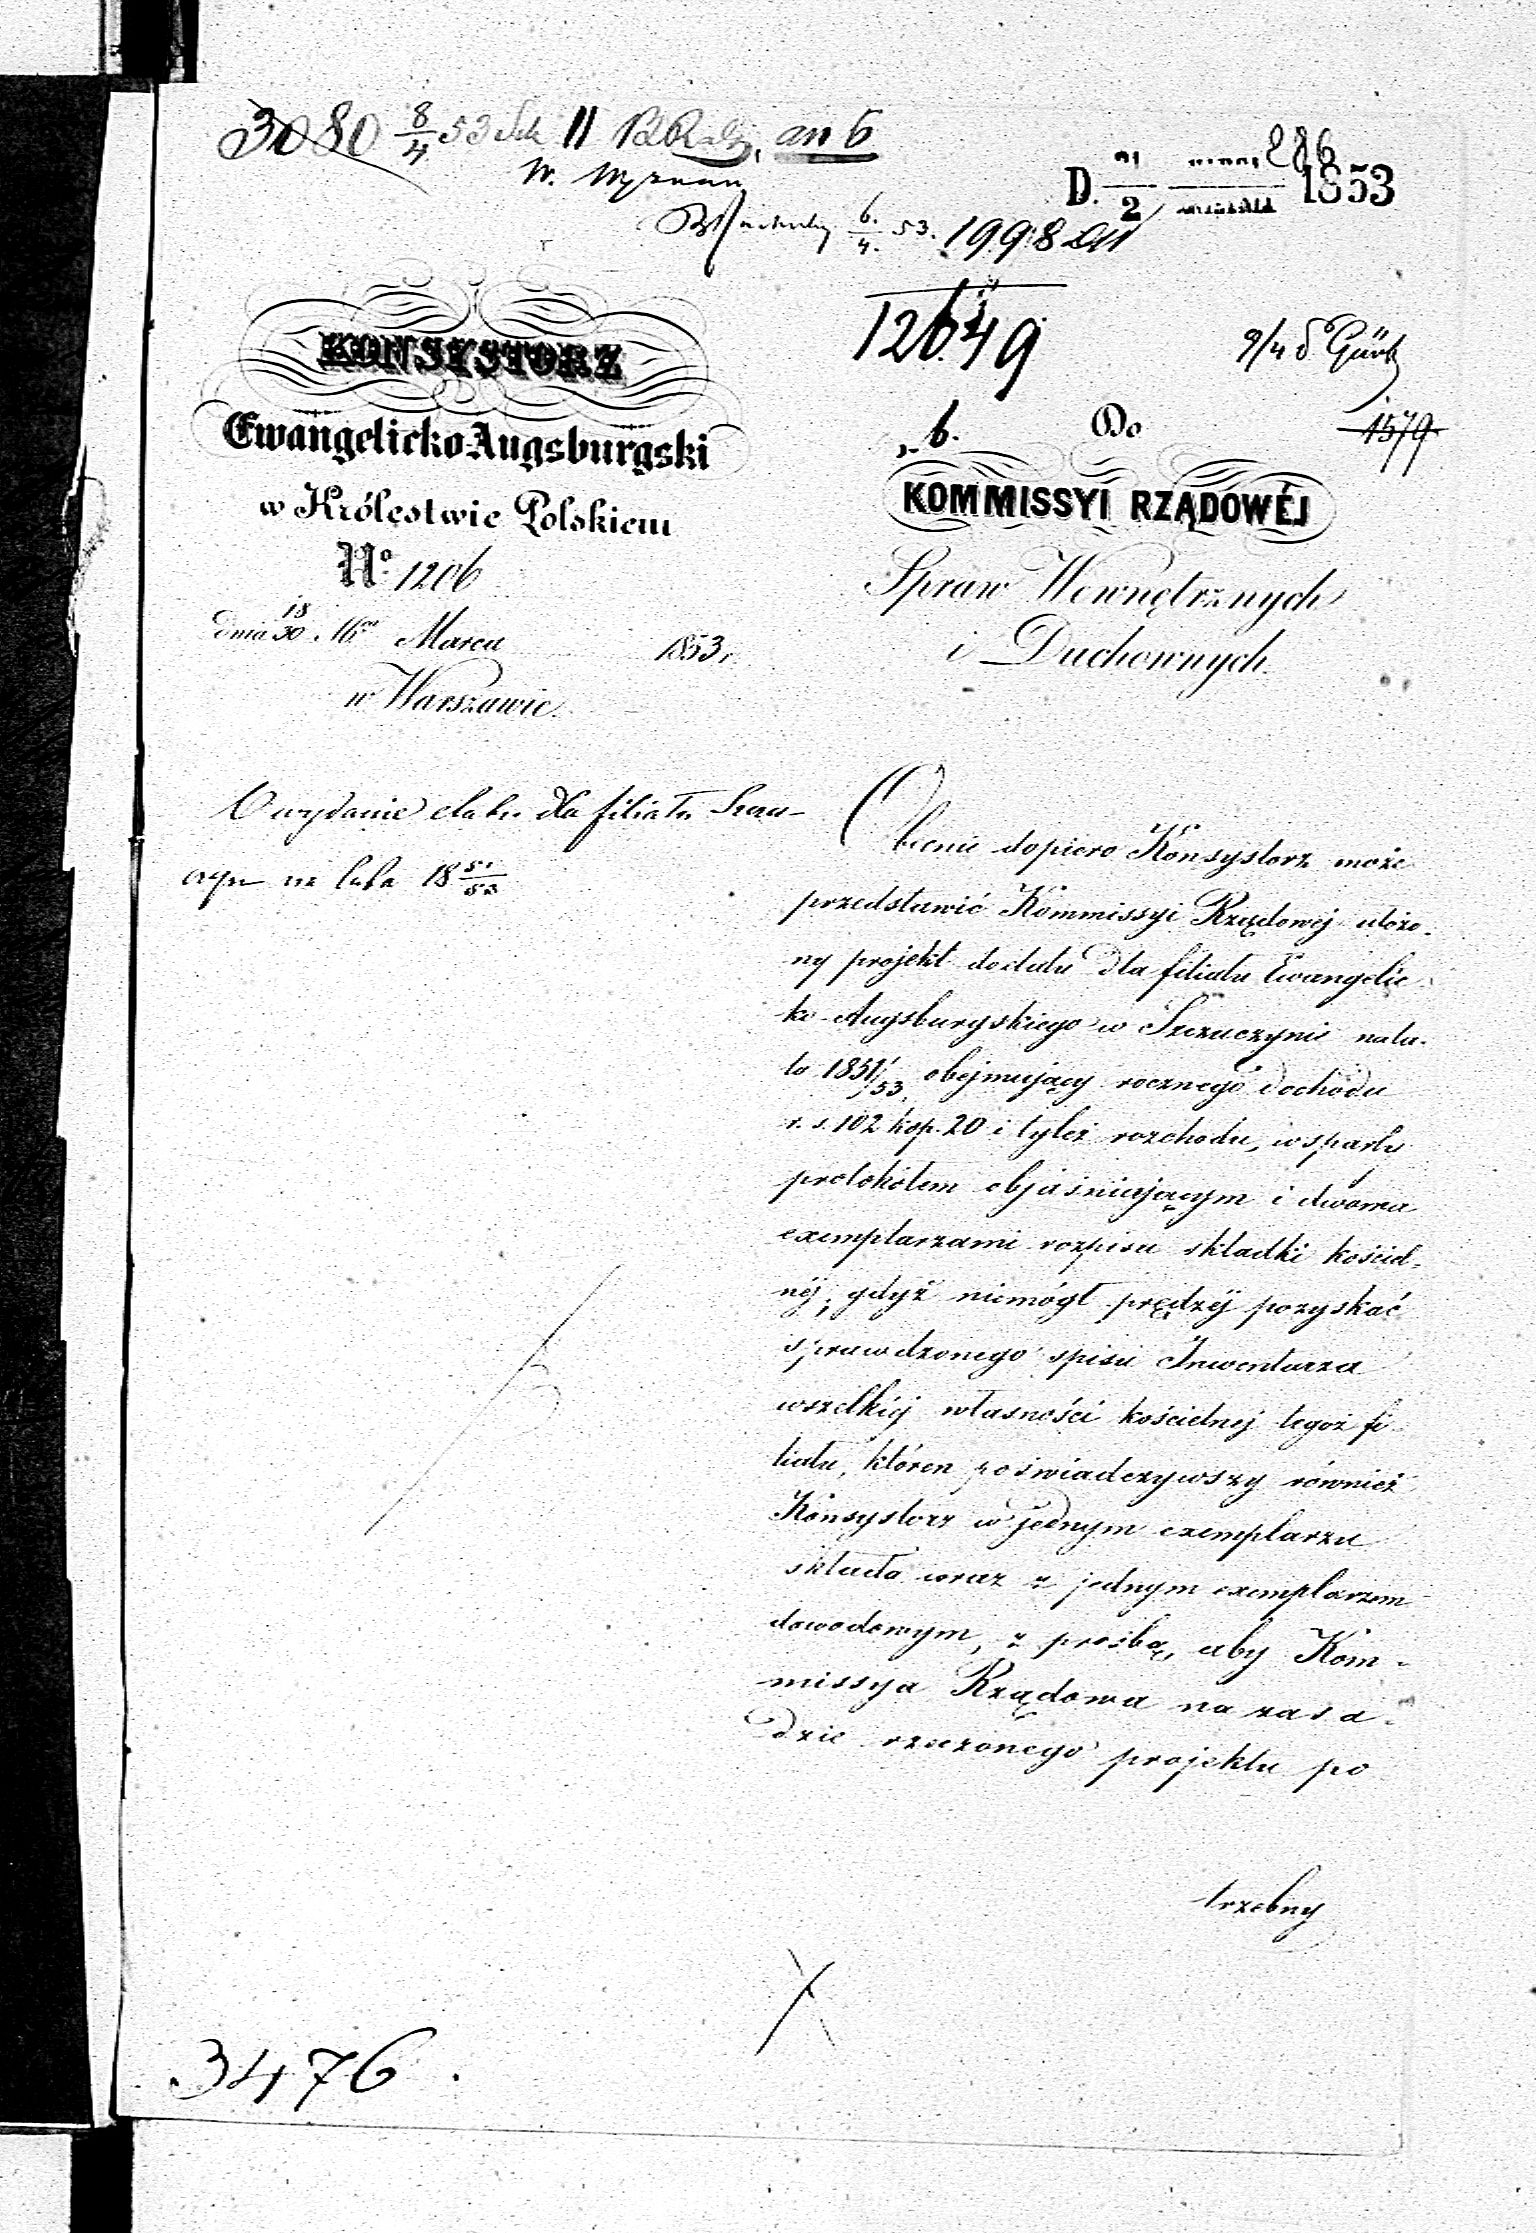 3080 8/4 53 II an 6
W. Wyznań
6./4. 53. 1998
D. 2 286 1853
12649
9/4
KONSYSTORZ
Ewangelicko-Augsburgski
w Królestwie Polskiem
Nº 1206
dnia 18/30 Mca Marca 1853 r.
w Warszawie.
6. Do 1579
KOMMISSYI RZĄDOWÉJ
Spraw Wewnętrznych
i Duchownych.
O wydanie etatu dla filiału Szczu-
czyn na lata 18 51/53
Obecnie dopiero Konsystorz może
przedstawić Kommissyi Rządowéj ułożo-
ny projekt do etatu dla filiału Ewangelic
ko Augsburgskiego w Szczuczynie na la-
ta 1851/53, obejmujący rocznego dochodu
r. s. 102 kop. 20 i tyleż rozchodu, wsparty
protokółem objaśniającym i dwoma
exemplarzami rozpisu składki kościel-
néj, gdyż niemógł prędzéj pozyskać
sprawdzonego spisu Inwentarza
wszelkiéj własności kościelnej tegoż fi-
liału, któren poświadczywszy również
Konsystorz w jednym exemplarzu
składa wraz z jednym exemplarzem
dowodowym, z prośbą, aby Kom-
missya Rządowa na zasa-
dzie rzeczonego projektu po
trzebny
3476.